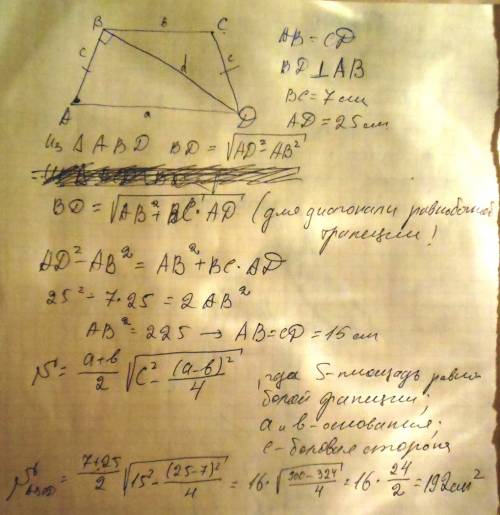 B в C
AB = CD
c d c
BD ⊥ AB
BC = 7 см
A a D
AD = 25 см
Из Δ ABD BD = √(AD² - AB²)
BD = √(AB² + BC · AD) (для диагонали равнобочной
трапеции!
AD² - AB² = AB² + BC · AD
25² - 7·25 = 2 AB²
AB² = 225 → AB = CD = 15 см
S = (a+в)/2 √(c² - (a-в)²/4)
, где S - площадь равно
бокой трапеции;
a и в - основания;
c - боковая сторона
S ABCD = (7+25)/2 √(15² - (25-7)²/4) = 16 · √((900-324)/4) = 16 · 24/2 = 192 см²